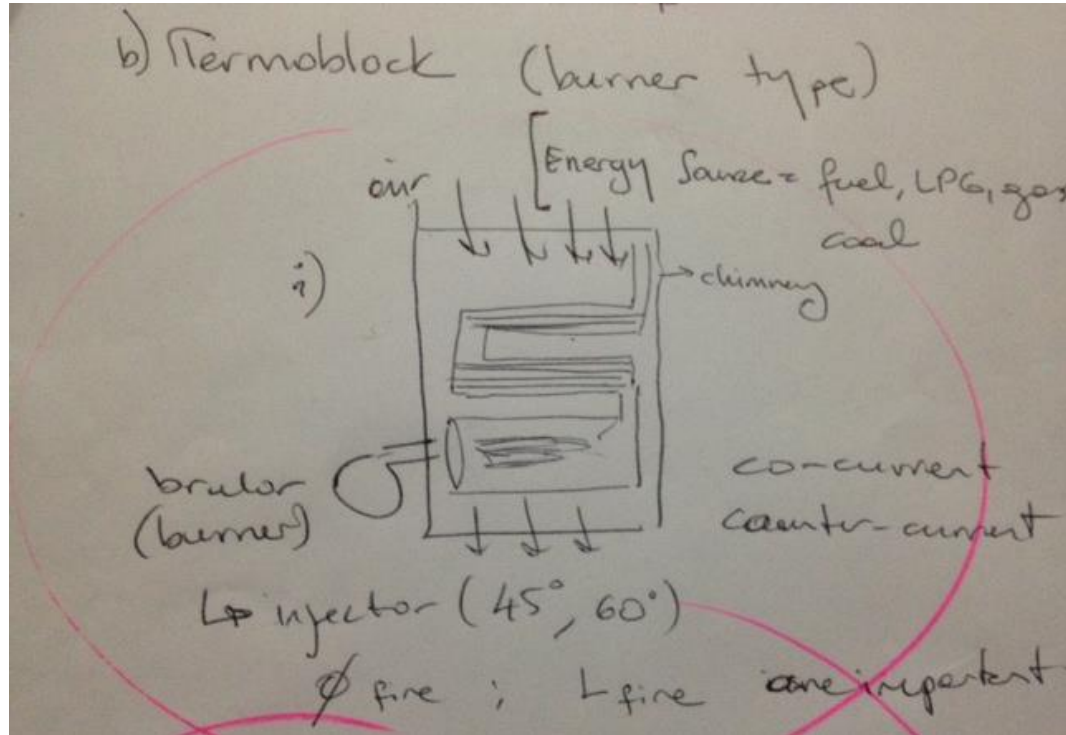 b) Termoblock (burner type)
[Energy Source = fuel, LPG, gas,
coal
air
i)
→ chimney
brulor
(burner)
co-current
counter-current
↳ injector (45°, 60°)
ϕ fire ; L fire are important